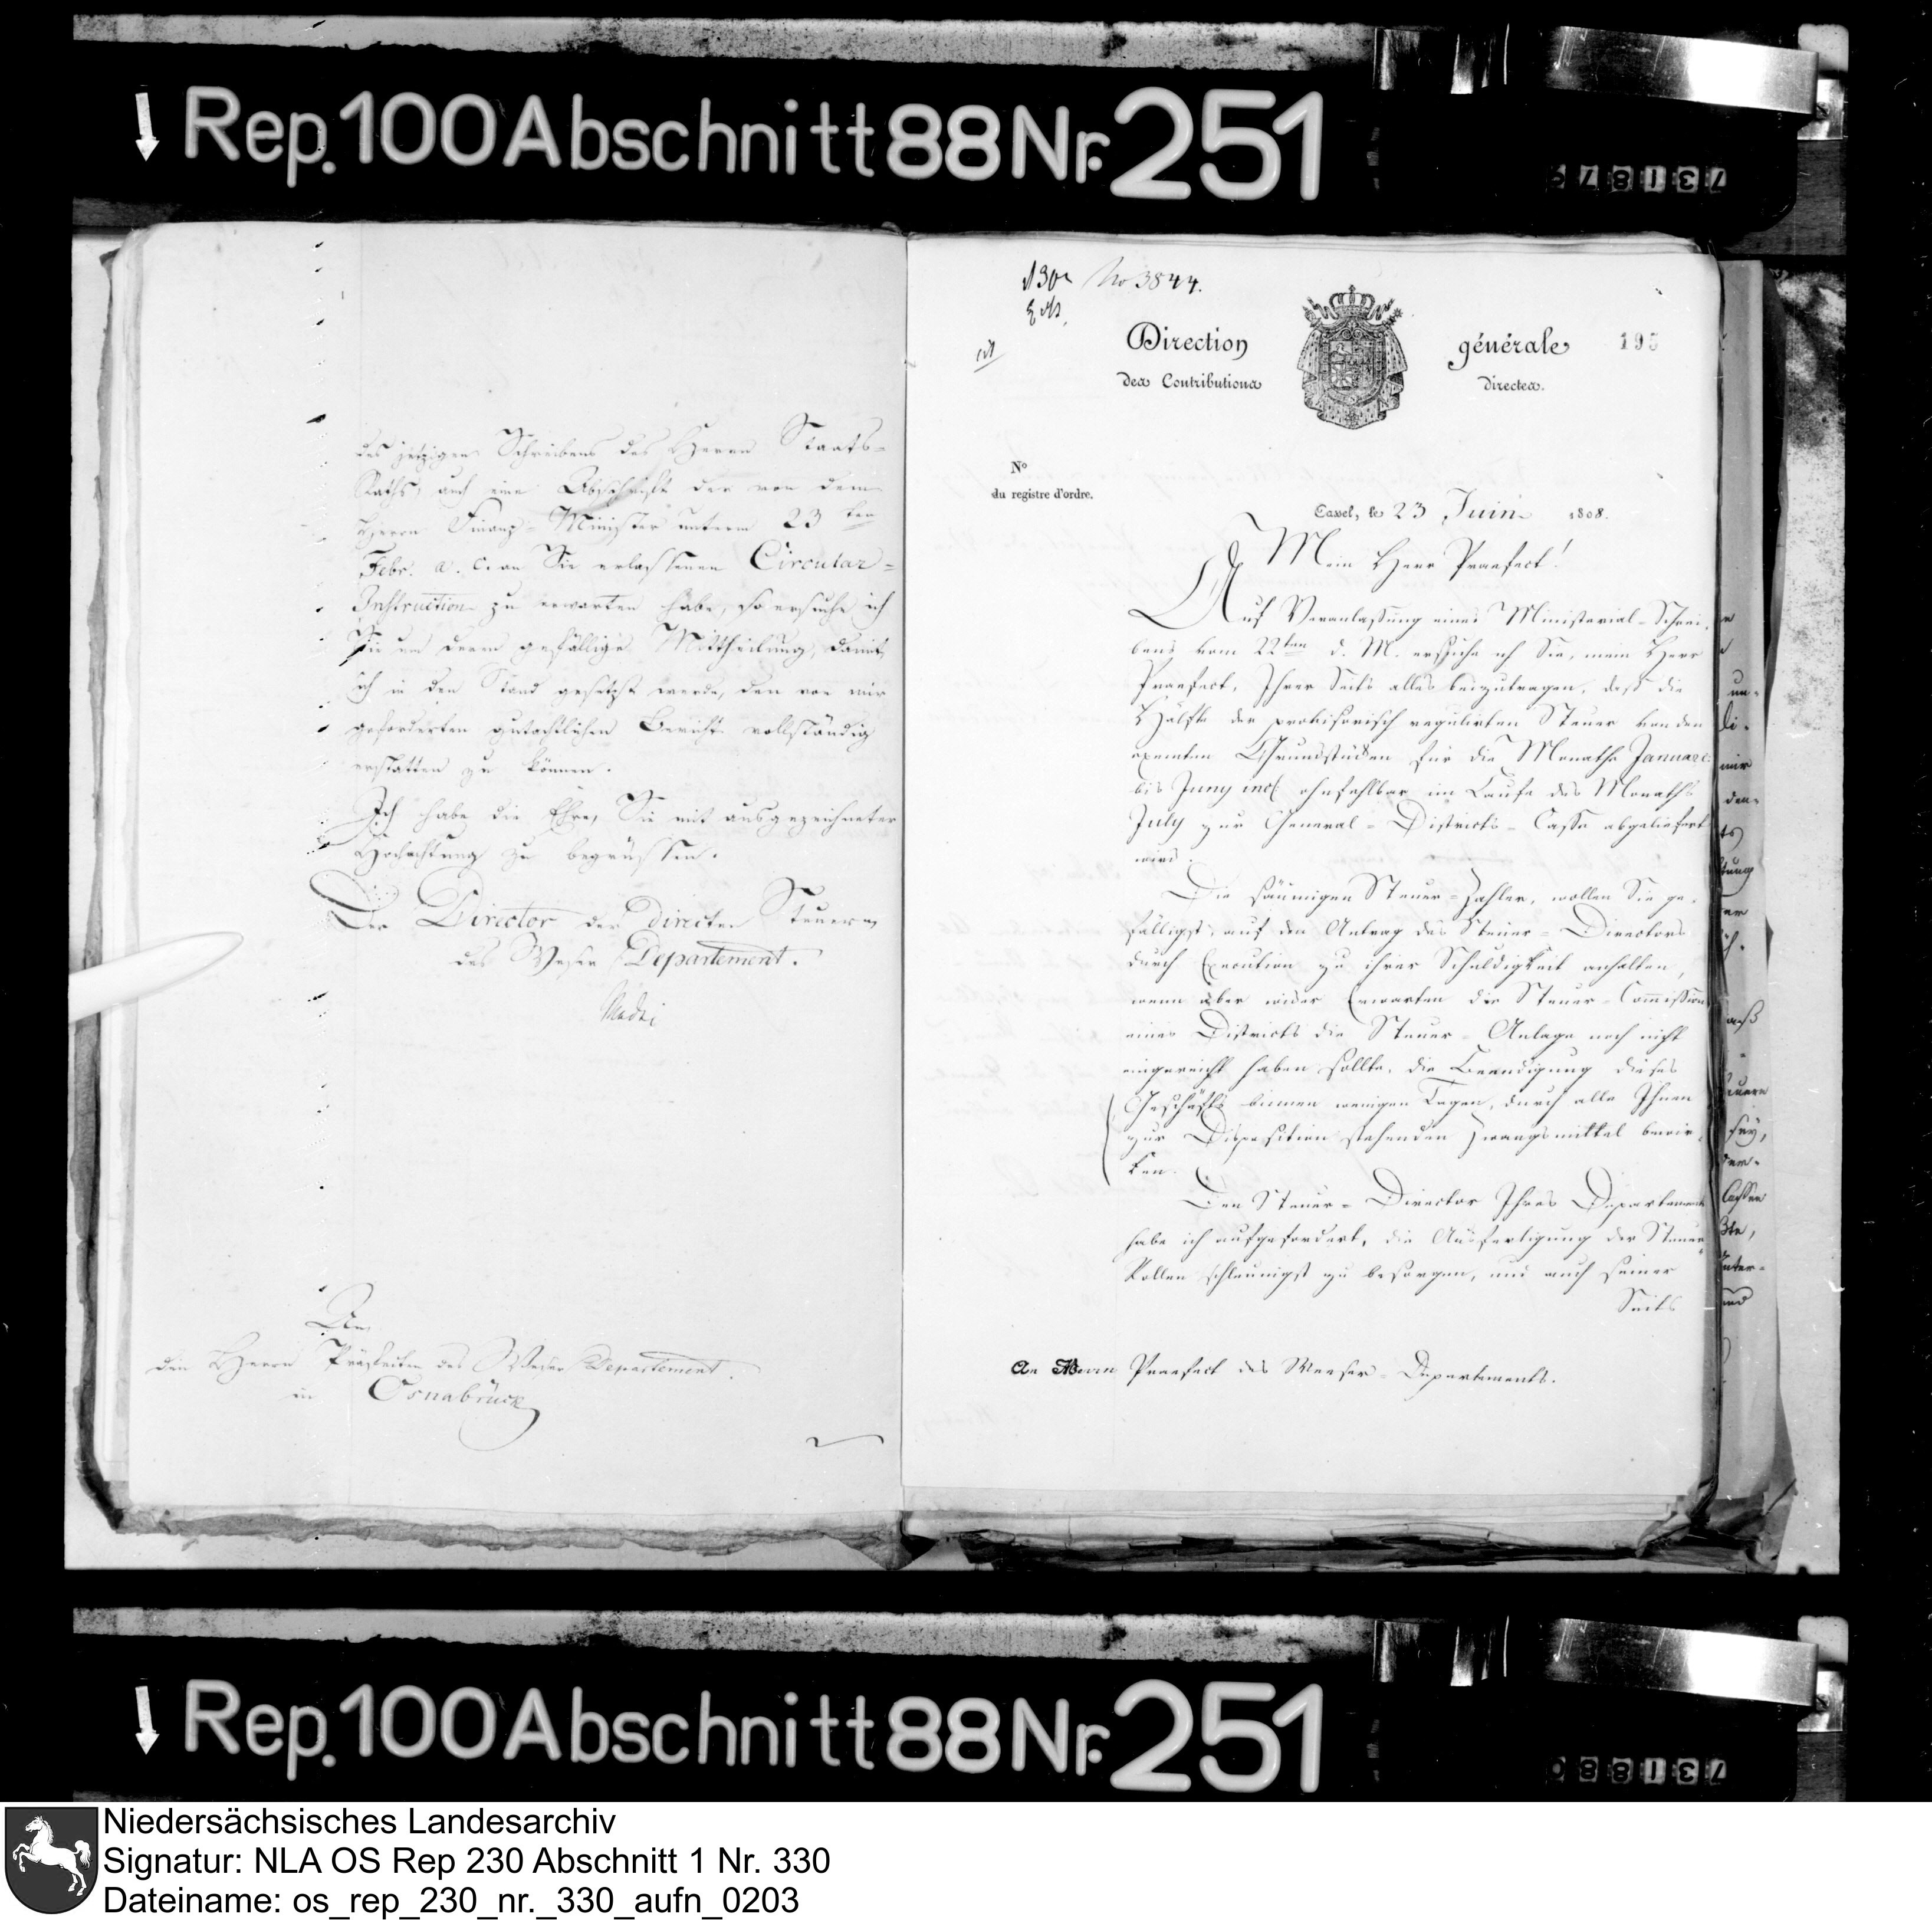 Rep. 100 Abschnitt 88 Nr. 251
731879
des jetzigen Schreibens des Herrn Staats-
Raths, auch eine Abschrift der von dem
Herrn Finanz-Minister unterm 23ten
Febr. a. c. an Sie erlassenen Circular-
Instruction zu erwarten habe, so ersuche ich
Sie um deren gefällige Mittheilung, damit
ich in den Stand gesetzt werde, den von mir
geforderten gutachtlichen Bericht vollständig
erstatten zu können.
Ich habe die Ehre, Sie mit ausgezeichneter
Hochachtung zu begrüssen.
Der Director der directen Steuern
des Weser Departement.
An
den Herrn Präfecten des Weser Departement.
in Osnabrück
No 3844.
Direction générale
des Contributions directes.
195
No
du registre d'ordre.
Cassel, le 23 Juin 1808.
Mein Herr Praefect!
Auf Veranlassung eines Ministerial-Schrei-
bens vom 22ten d. M. ersuche ich Sie, mein Herr
Praefect, Ihrer Seits alles beizutragen, daß die
Hälfte der provisorisch regulirten Steuer von den
exemten Grundstücken für die Monathe Januar
bis Juny incl. ohnfehlbar im Laufe des Monaths
July zur General-Districts-Casse abgeliefert
wird.
Die säumigen Steuer-Zahler, wollen Sie ge-
fälligst, auf den Antrag des Steuer-Directors
durch Execution zu ihrer Schuldigkeit anhalten,
wenn aber wider Erwarten die Steuer-Commission
eines Districts die Steuer-Anlage noch nicht
eingereicht haben sollte, die Beendigung dieses
Geschäfts binnen wenigen Tagen, durch alle Ihnen
zur Disposition stehenden Zwangsmittel bewir-
ken.
Den Steuer-Director Ihres Departements
habe ich aufgefordert, die Ausfertigung der Steuer
Rollen schleunigst zu besorgen, und auch seiner
Seits
An Herrn Praefect des Weeser-Departements.
Rep. 100 Abschnitt 88 Nr. 251
731880
Niedersächsisches Landesarchiv
Signatur: NLA OS Rep 230 Abschnitt 1 Nr. 330
Dateiname: os_rep_230_nr._330_aufn_0203